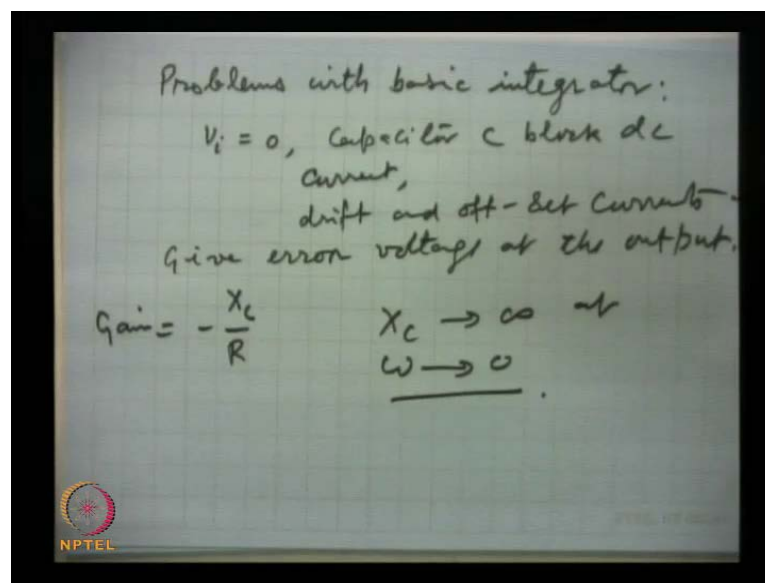 Problems with basic integrator:
Vi = 0, Capacitor C block dc
current,
drift and off-set currents
Give error voltage at the output.
Gain = - Xc / R    Xc → ∞ at
ω → 0
NPTEL